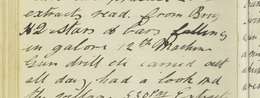 extracts read from Brig
H2 Stars & bars falling
in galore 12th Machine
Gun drill etc carried out
all day, had a look rnd
the village